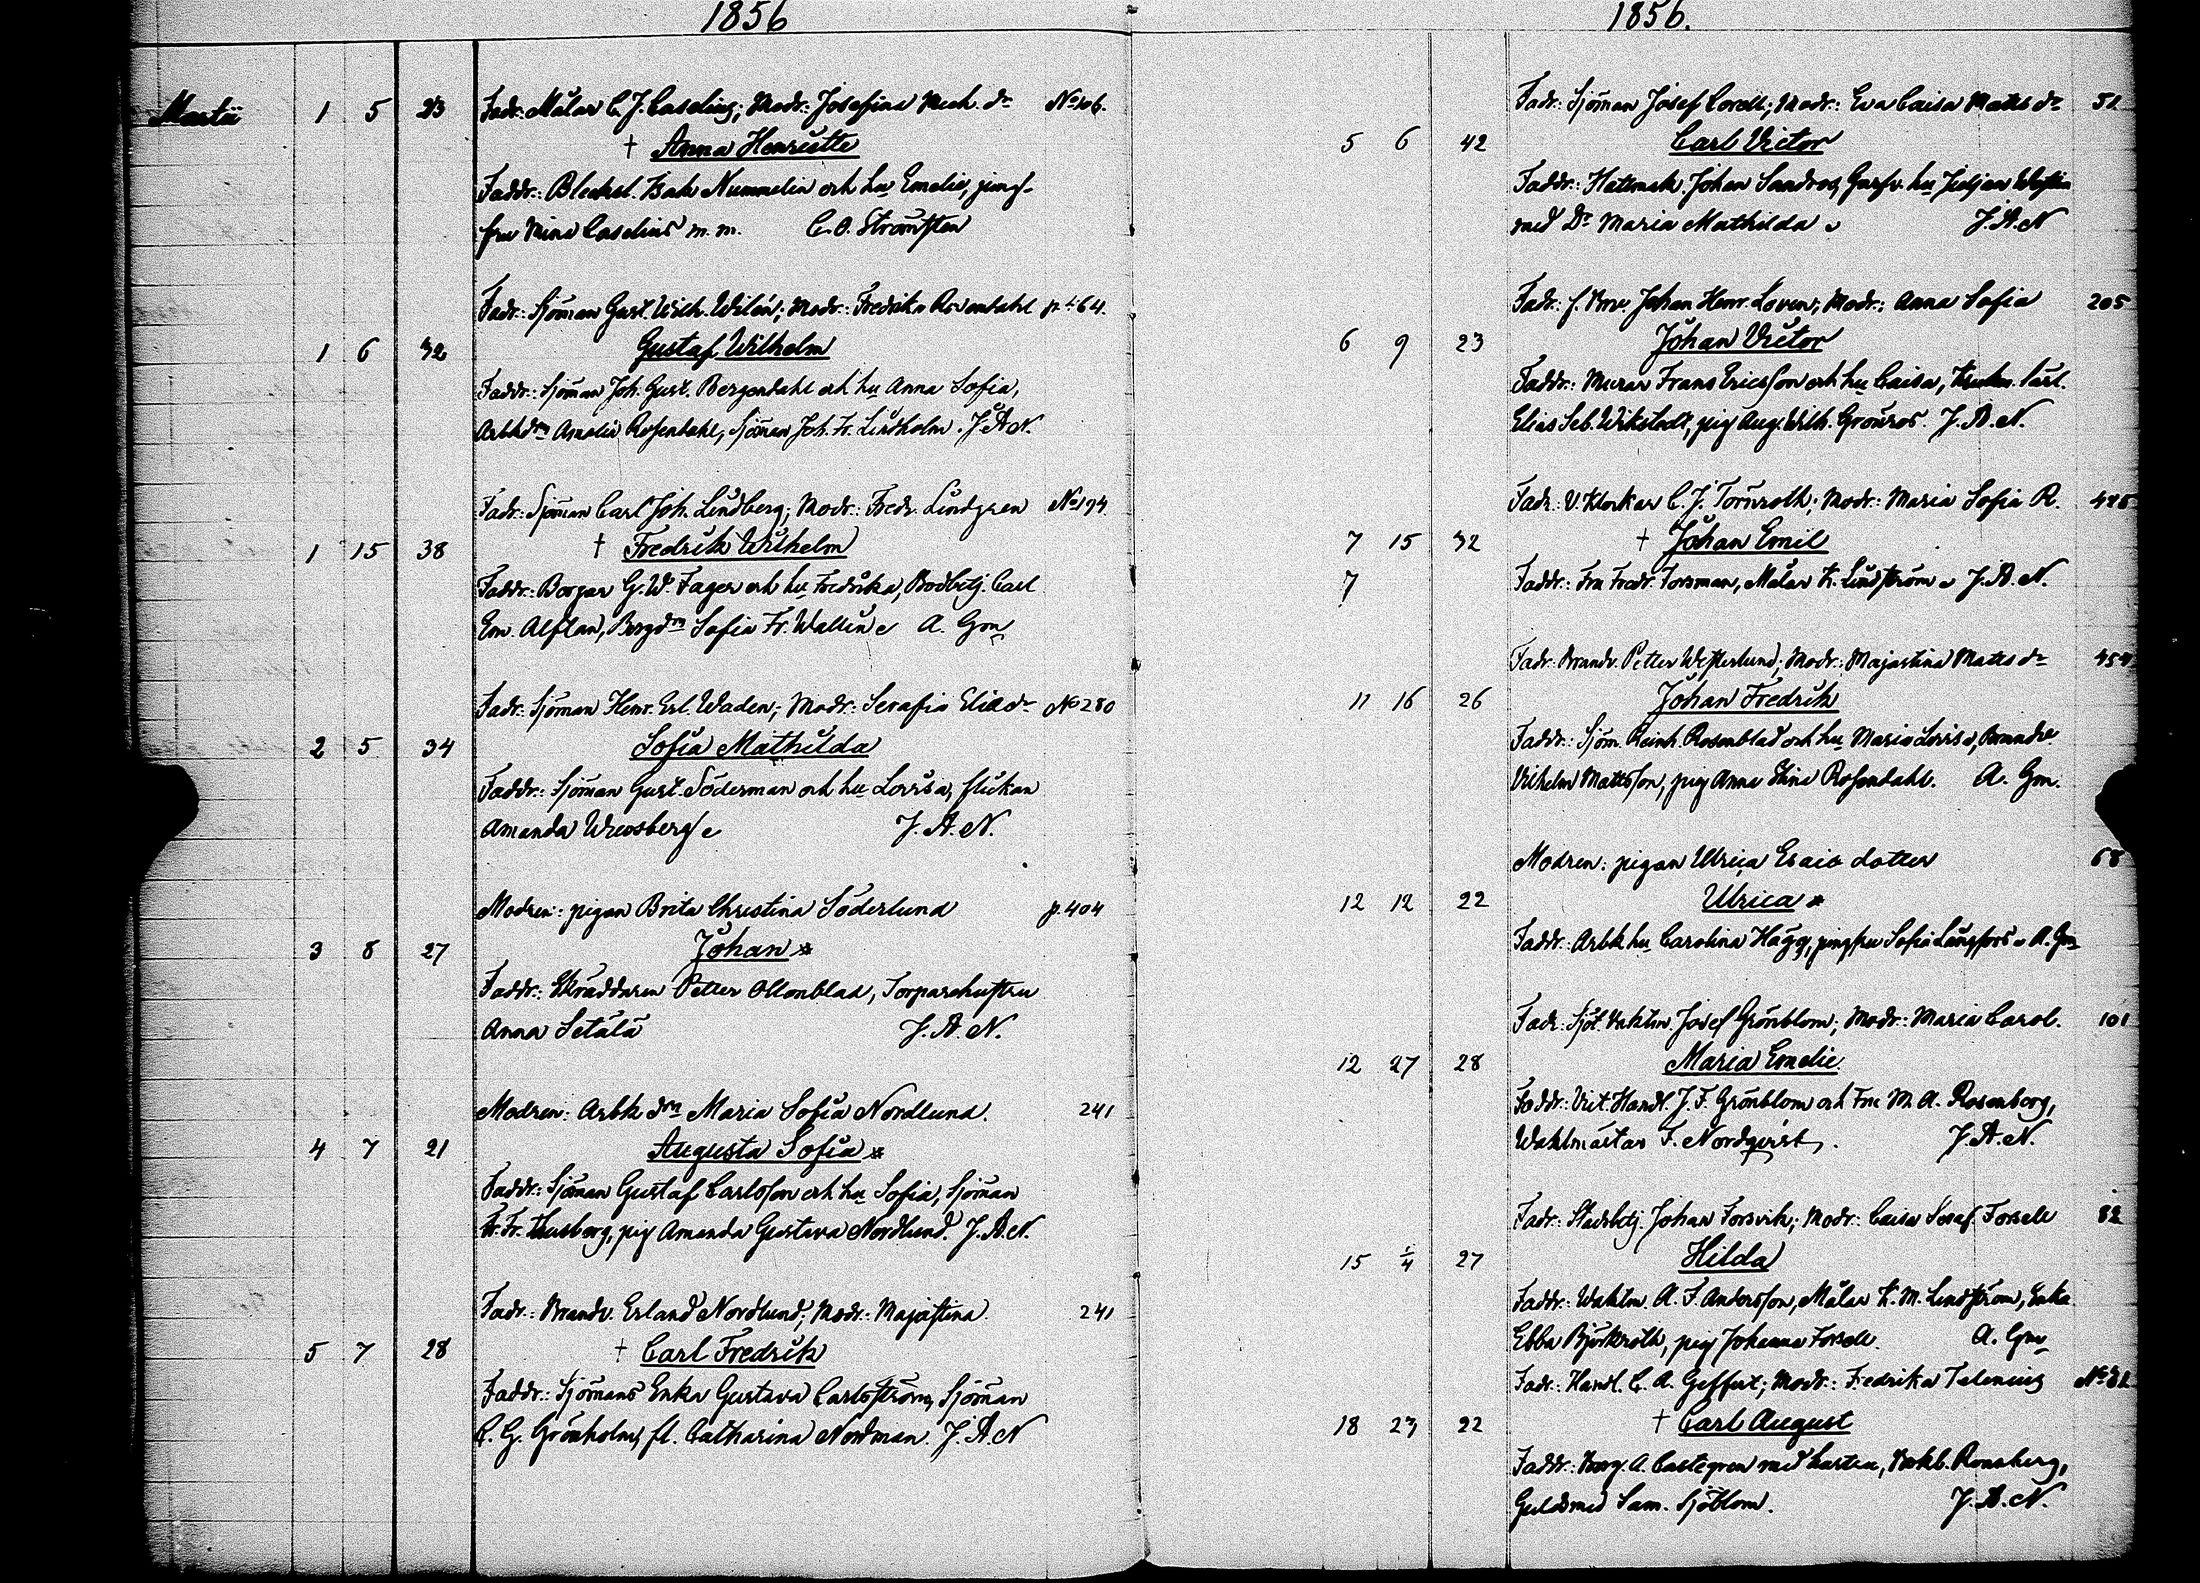 1856
Martii 1 5 23 Fadr: Målar C. J. Caselius; Modr: Josefina Mich. dr No 106.
† Anna Henriette
Faddr: Bleksl. Isak Nummelin och hu Emelie, jung-
fru Mina Caselius m. m. C. O. Strömsten
Fadr: Sjöman Gust. Wilh. Wilén; Modr: Fredrika Rosendahl p. 464.
1 6 32 Gustaf Wilhelm
Faddr: Sjöman Joh. Gust. Bergendahl och hu Anna Sofia,
Arbkdrn Amalia Rosendahl, Sjöman Joh. Fr. Lindholm. J. A. N.
Fadr: Sjöman Carl Joh. Lindberg; Modr: Fredr. Lindgren No 194
1 15 38 † Fredrik Wilhelm
Faddr: Borgar G. W. Fager och hu Fredrika, Bodbetj. Carl
Em. Alftan, Borgdrn Sofia Fr. Wallin A. Gm
Fadr: Sjöman Henr. Erl. Waden; Modr: Serafia Eliædr No 280
2 5 34 Sofia Mathilda
Faddr: Sjöman Gust. Söderman och hu Lovisa, flickan
Amanda J. A. N.
Modren: pigan Brita Christina Söderlund p. 404
3 8 27 Johan *
Faddr: Skräddaren Petter Ollonblad, Torparehustru
Anna Setälä J. A. N.
Modren: Arbk drn Maria Sofia Nordlund. 241
4 7 21 Augusta Sofia *
Faddr: Sjöman Gustaf Carlsson och hu Sofia, Sjöman
Fr. Fr. Thusberg, pig Amanda Gustava Nordlund. J. A. N.
Fadr: Brandv. Erland Nordlund; Modr: Majastina 241
5 7 28 † Carl Fredrik
Faddr: Sjömans Enka Gustava Carlsström, Sjöman
C. G. Grönholm, fl. Catharina Nordman. J. A. N
1856.
Fadr: Sjöman Josef Corell; Modr: Eva Caisa Matts dr 51
5 6 42 Carl Victor
Faddr: Hattmak. Johan Sandros, hu
med Dr Maria Mathilda J. A. N
Fadr: Johan Henr. Loven; Modr: Anna Sofia 205
6 9 23 Johan Victor
Faddr: Murar Frans Ericsson och hu Caisa,
Elias Seb. Wikstedt, pig Aug. Wilh. Grönros. J. A. N.
Fadr: V. Klockar C. J. Törnroth; Modr: Maria Sofia R.
7 15 32 † Johan Emil
7 Faddr: Fru Fredr. Forsman, Målar K. Lindström J. A. N.
Fadr: Brandv. Petter Westerlund; Modr: Majastina Matts dr 454
11 16 26 Johan Fredrik
Faddr: Sjöm. Reinh. Rosenblad och hu Maria Lovisa, Brandv.
Vilhelm Mattsson, pig Anna Stina Rosendahl. A. Gm.
Modren: pigan Ulrica Esaiæ dotter 68
12 12 22 Ulrica *
Faddr: Arbk hu Carolina Hägg, jungfru Sofia Långfors A. Gm
Fadr: Sjöt. Vaktm. Josef Grönblom; Modr: Maria Carol. 101
12 27 28 Maria Emelie
Faddr: Vict. Handl. J. F. Grönblom och Fru M. A. Rosenborg,
Waktmästar F. Nordqvist J. A. N.
Fadr: Stadsbetj. Johan Forsvik; Modr: Caisa Seraf. Forsell 82
15 1/4 27 Hilda
Faddr: Waktm. A. F. Andersson, Målar K. M. Lindström, Enka
Ebba Björkroth, pig Johanna Forsell. A. Gm
Fadr: Handl. C. A. Geffert; Modr: Fredrika Telenius No 31
18 23 22 † Carl August
Faddr: Borg. A. Castegren med hustru, Bokb. Ronsberg,
Guldsmed Sam. Sjöblom. J. A. N.